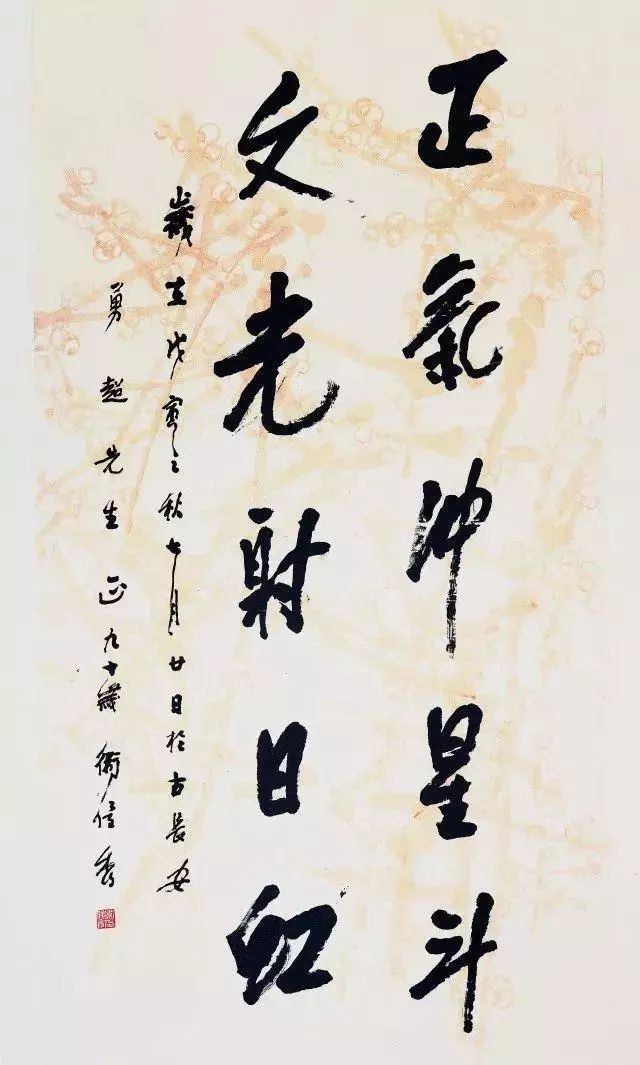 正氣沖星斗
文光射日虹
歲在戊寅之秋七月廿日於古長安
勇超先生正九十歲衛俊秀